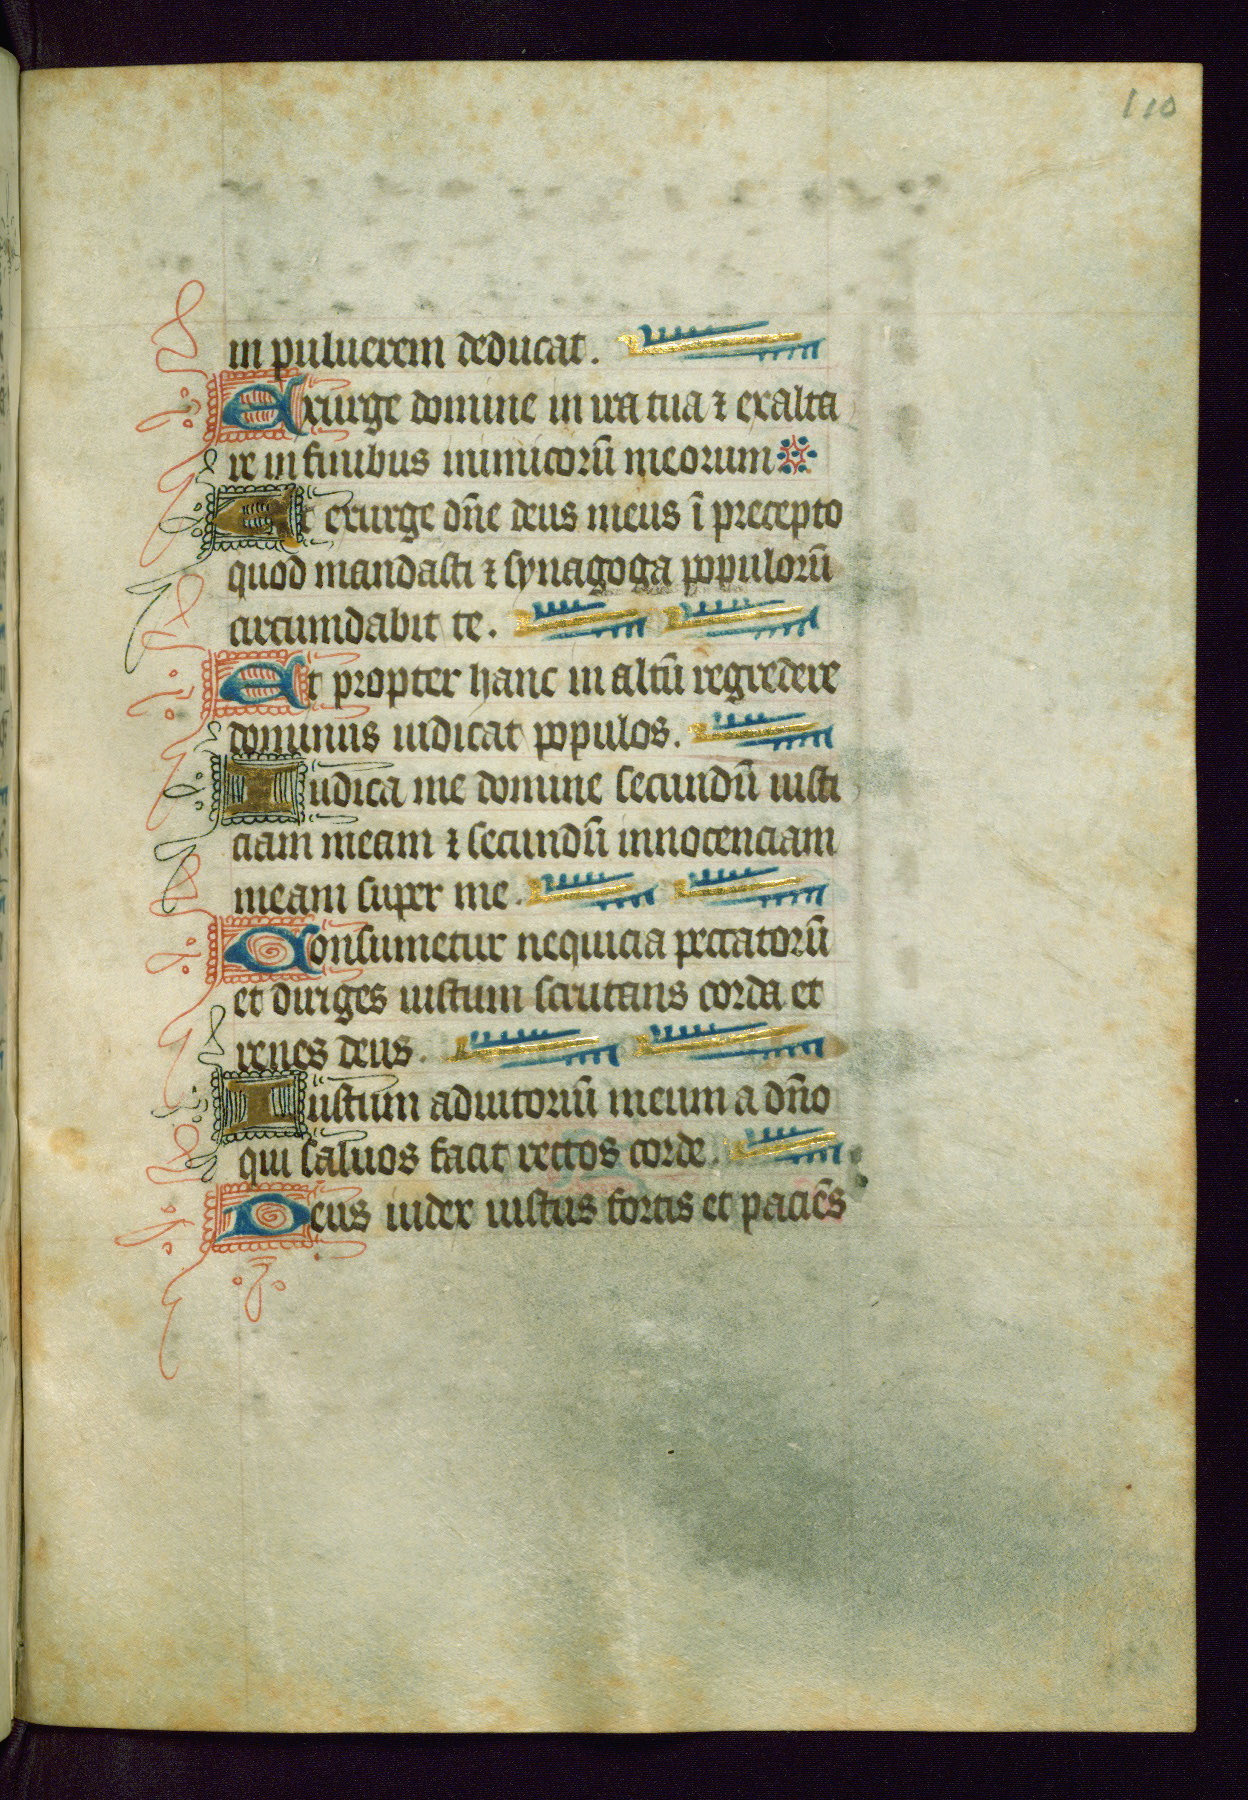 110
in puluerem deducat.
Exurge domine in ira tua ⁊ exalta
re in finibus inimicorū meorum
Et exurge dn̄e deus meus ī precepto
quod mandasti ⁊ synagoga populorū
circumdabit te.
Et propter hanc in altū regredere
dominus iudicat populos.
Iudica me domine secundū iusti
ciam meam ⁊ secundū innocenciam
meam super me.
Consumetur nequicia peccatorū
et diriges iustum scrutans corda et
renes deus.
Iustum adiutoriū meum a dn̄o
qui saluos facit rectos corde.
Deus iudex iustus fortis et paciēs